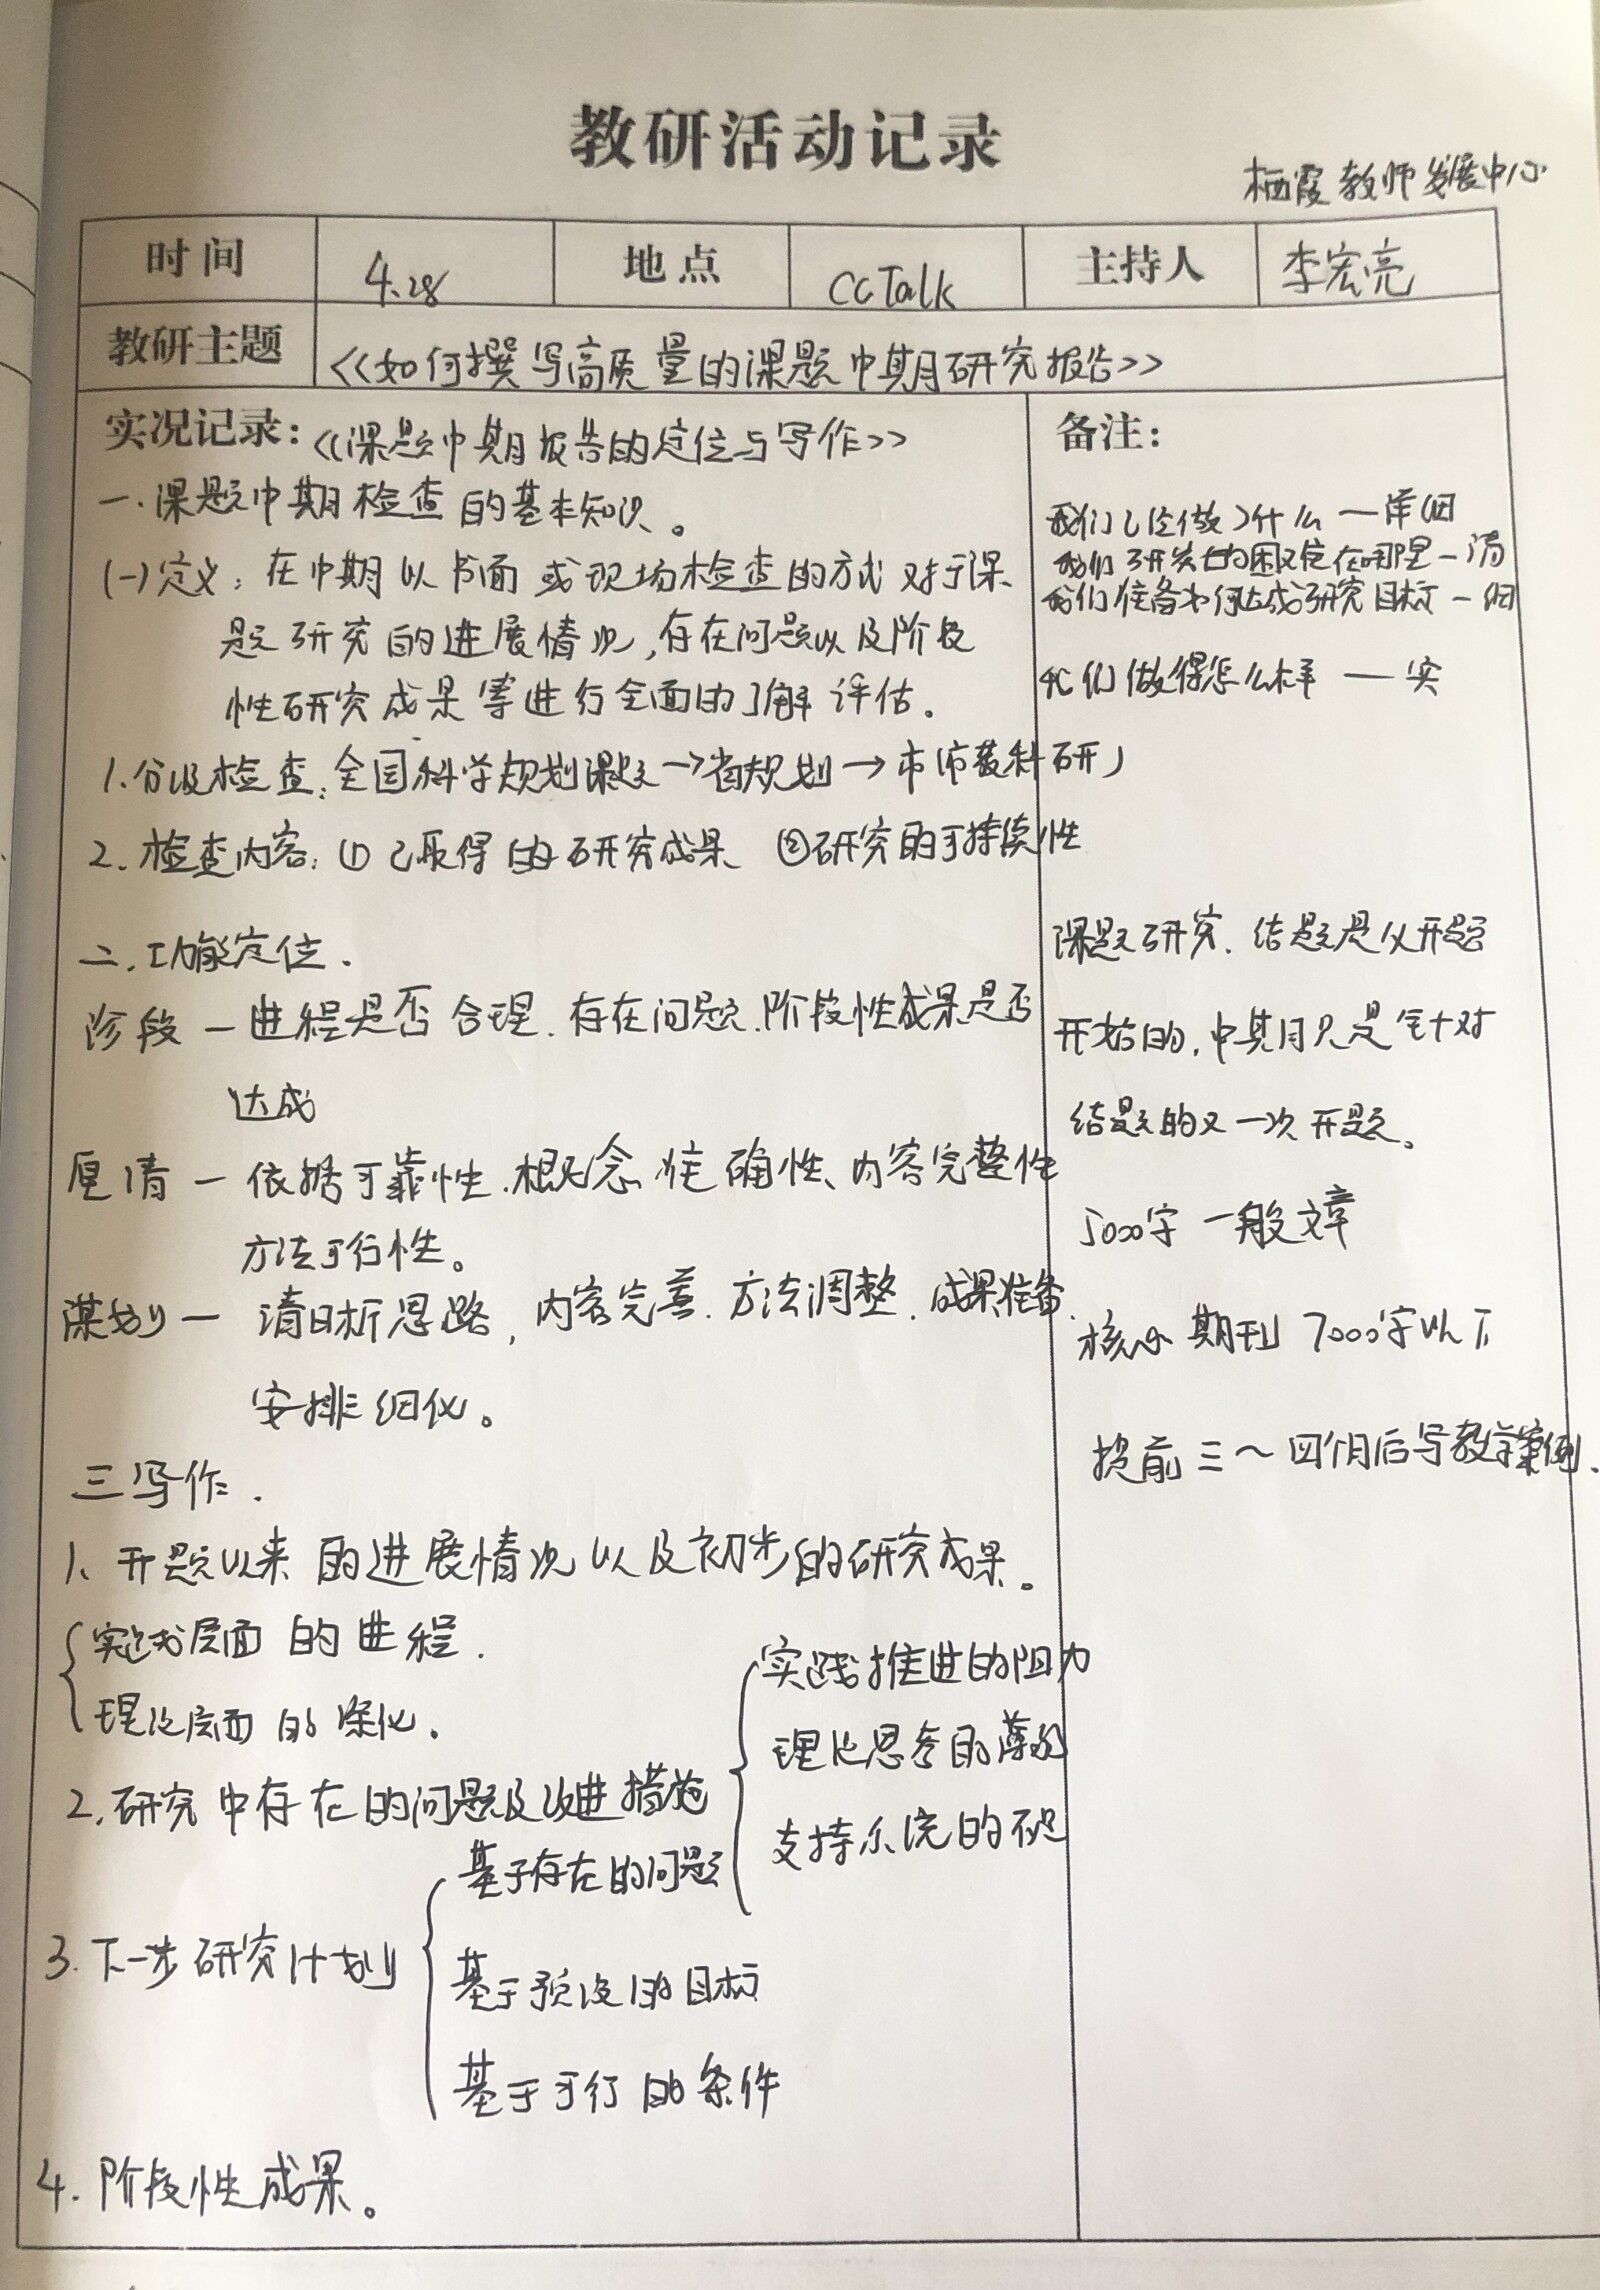 教研活动记录
栖霞教师发展中心
时间 4.28 地点 CCTalk 主持人 李宏亮
教研主题 <<如何撰写高质量的课题中期研究报告>>
实况记录：<<课题中期报告的定位与写作>>
一.课题中期检查的基本知识。
(一)定义：在中期以书面或现场检查的方式对于课
题研究的进展情况,存在问题以及阶段
性研究成果等进行全面的了解评估。
1.分级检查：全国科学规划课题→省规划→市(市教科研)
2.检查内容：①已取得的研究成果 ②研究的可持续性
二.功能定位.
阶段—进程是否合理.存在问题.阶段性成果是否
达成
厘清—依据可靠性.概念准确性、内容完整性
方法可行性。
谋划—清晰思路,内容完善.方法调整.成果准备.
安排细化。
三写作.
1、开题以来的进展情况以及初步的研究成果。
实践层面的进程.
理论层面的深化.
2.研究中存在的问题及改进措施
实践推进的阻力
理论思考的薄弱
支持系统的不足
3.下一步研究计划
基于存在的问题
基于预设的目标
基于可行的条件
4.阶段性成果。
备注：
我们已经做了什么—详细
我们研究中的困难在哪里—清
我们准备如何达成研究目标—细
我们做得怎么样—实
课题研究.结题是从开题
开始的,中期只是针对
结题的又一次开题。
5000字一般文章
核心期刊7000字以下
提前三~四个月后写教学案例.